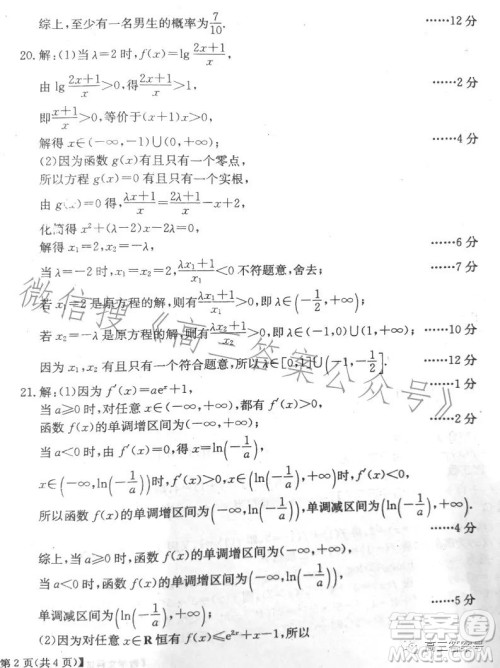 综上,至少有一名男生的概率为7/10. ……12分
20.解:(1)当λ=2时,f(x)=lg (2x+1)/x,
由 lg (2x+1)/x>0,得(2x+1)/x>1, ……2分
即(x+1)/x>0,等价于(x+1)x>0,
解得x∈(-∞,-1)∪(0,+∞). ……4分
(2)因为函数g(x)有且只有一个零点,
所以方程g(x)=0有且只有一个实根,
由g(x)=0,得(λx+1)/x=(2λ+1-x)/x,
化简得x²+(λ-2)x-2λ=0,
解得x₁=2,x₂=-λ. ……6分
当λ=-2时,x₁=x₂=2,(λx₁+1)/x₁<0不符题意,舍去; ……7分
若x₁=2是原方程的解,则有(λx₁+1)/x₁>0,即λ∈(-1/2,+∞);
若x₂=-λ是原方程的解,则有(λx₂+1)/x₂>0,即λ∈(-1,0)∪(1,+∞). ……10分
因为x₁,x₂有且只有一个符合题意,所以λ∈[0,1]∪(-1,-1/2]. ……12分
21.解:(1)因为f′(x)=aeˣ+1, ……1分
当a≥0时,对任意x∈(-∞,+∞),都有f′(x)>0,
所以函数f(x)的单调增区间为(-∞,+∞); ……2分
当a<0时,由f′(x)=0得x=ln(-1/a),
x∈(-∞,ln(-1/a))时,f′(x)>0;当x∈(ln(-1/a),+∞)时,f′(x)<0.
所以函数f(x)的单调增区间为(-∞,ln(-1/a)),单调减区间为(ln(-1/a),+∞).
……4分
综上,当a≥0时,函数f(x)的单调增区间为(-∞,+∞);
当a<0时,函数f(x)的单调增区间为(-∞,ln(-1/a)),
单调减区间为(ln(-1/a),+∞). ……5分
(2)因为对任意x∈R恒有f(x)≤e²ˣ+x-1,所以
第2页(共4页)】
微信搜《高三答案公众号》
高三答案号